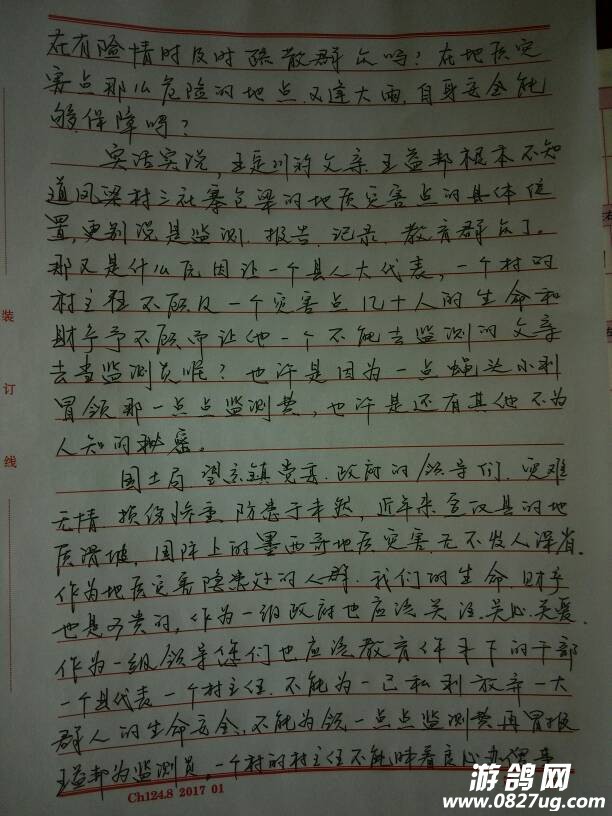 在有险情时及时疏散群众吗？在地质灾
害点那么危险的地点，又逢大雨，自身安全能
够保障吗？
实话实说，王定川的父亲王益邦根本不知
道凤梁村三社寨包梁的地质灾害点的具体位
置，更别说是监测、报告、记录、教育群众了。
那又是什么原因让一个县人大代表，一个村的
村主任不顾及一个灾害点几十人的生命和
财产予不顾而让他一个不能去监测的父亲
去当监测员呢？也许是因为一点蝇头小利
冒领那一点点监测费，也许是还有其他不为
人知的秘密。
国土局、望京镇党委、政府的领导们，灾难
无情，损伤惨重，防患于未然，近年来宣汉县的地
质滑坡，国际上的墨西哥地质灾害，无不发人深省。
作为地质灾害隐患处的人群，我们的生命、财产
也是可贵的，作为一级政府也应该关注、关心、关爱。
作为一级领导您们也应该教育你手下的干部
一个县代表一个村主任，不能为一己私利放弃一大
群人的生命安全，不能为领一点点监测费再冒报
王益邦为监测员。一个村的村主任不能昧着良心办
装
订
线
Ch124.8 2017 01
游鸽网
www.0827ug.com